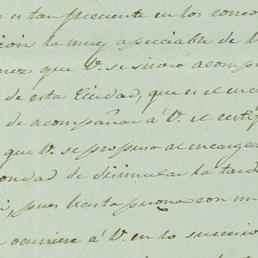 es tan frecuente en los conoc
ción la muy apreciable de V
nez que V. se sirvió acompa
de esta Ciudad, que es el enca
de acompañar á V. el certif
que V. se propuso al encarga
ondad de disimular la tard
, pues hasta ahora con mi
ocurriere á V. en lo sucesivo